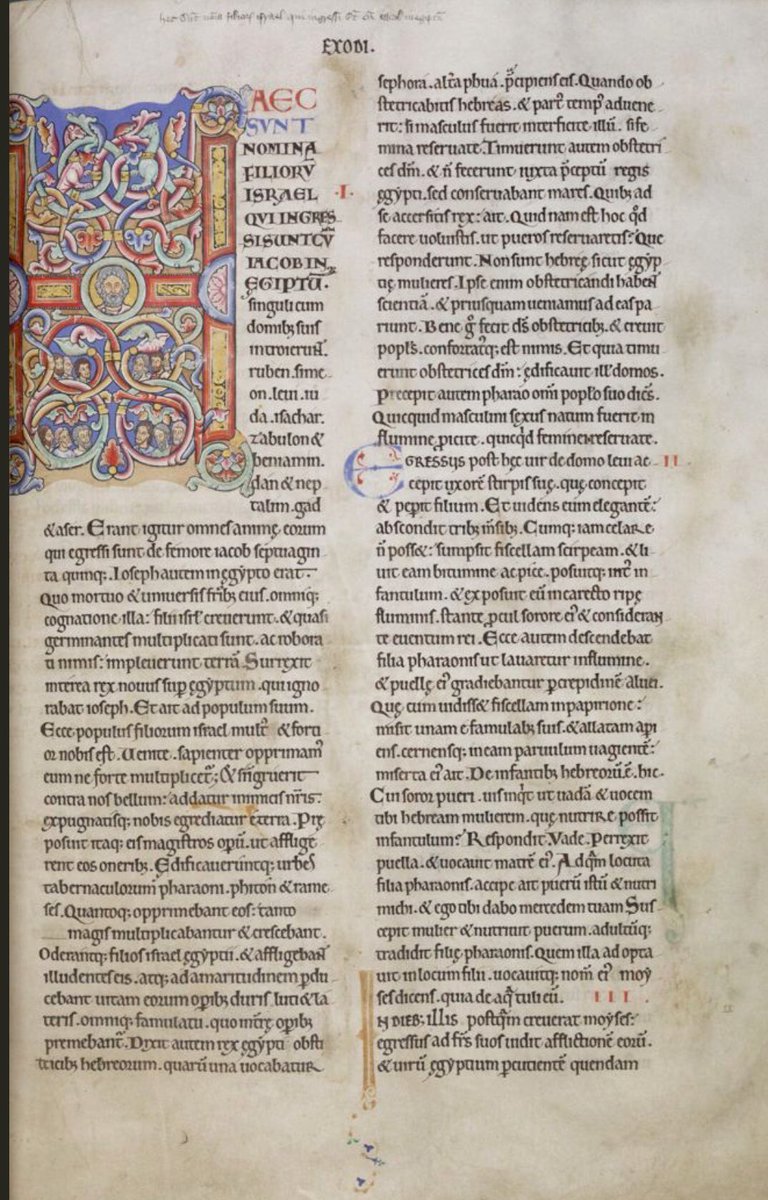 EXODI.
AEC
SVNT
NOMINA
FILIORV̄
ISRAEL .I.
QVI INGRES
SI SVNT CV̄
IACOB IN
EGIPTŪ.
singuli cum
domibꝫ suis
introierunt.
ruben. sime
on. leui. iu
da. isachar.
zabulon &
beniamin.
dan & nep
talim. gad
& aser. Erant igitur omnes animę eorum
qui egressi sunt de femore iacob septuagin
ta quinq;. Ioseph autem in ęgẏpto erat.
Quo mortuo & uniuersis fr̄ibꝫ eius. omniq;
cognatione illa: filii isrl̄ creuerunt. & quasi
germinantes multiplicati sunt. ac robora
ti nimis: impleuerunt terrā. Surrexit
interea rex nouus sup̄ ęgẏptum. qui igno
rabat ioseph. Et ait ad populum suum.
Ecce populus filiorum israel mult᷒ & forti
or nobis est. Uenite. sapienter opprimam᷒
eum ne forte multiplicet᷒; & si ingruerit
contra nos bellum: addatur inimicis nr̄is:
expugnatisq; nobis egrediatur e terra. Prę
posuit itaq; eis magistros opū. ut afflige
rent eos oneribꝫ. Edificaueruntq; urbes
tabernaculorum pharaoni. phiton & rame
ses. Quantoq; opprimebant eos: tanto
magis multiplicabantur & crescebant.
Oderantq; filios israel ęgẏptii. & affligebant
illudentes eis. atq; ad amaritudinem ꝑdu
cebant uitam eorum opibꝫ duris luti & la
teris. omniq; famulatu. quo in tr̄ę opibꝫ
premebant᷒. Dixit autem rex ęgẏpti obste
tricibꝫ hebreorum. quarū una uocabatur
sephora. alt̄a phua. p̄cipiens eis. Quando ob
stetricabitis hebreas. & part᷒ temp᷒ aduene
rit: si masculus fuerit interficite illū. si fe
mina reseruate. Timuerunt autem obstetri
ces dm̄. & n̄ fecerunt iuxta p̄ceptū regis
ęgẏpti. sed conseruabant mares. Quibꝫ ad
se accersitis rex: ait. Quid nam est hoc qd̄
facere uoluistis. ut pueros reseruaretis? Quę
responderunt. Non sunt hebreę sicut ęgẏp
tię mulieres. Ipse enim obstetricandi habent
scientiā. & priusquam ueniamus ad eas pa
riunt. Bene ḡ fecit ds̄ obstetricibꝫ. & creuit
popl̄s. confortatq; est nimis. Et quia timu
erunt obstetrices dm̄: ędificauit ill᷒ domos.
Precepit autem pharao om̄i popl̄o suo dicēs.
Quicquid masculini sexus natum fuerit in
flumine ꝓicite. quicqd̄ feminei reseruate.
EGRESSUS post hęc uir de domo leui ac II
cepit uxorē stirpis suę. quę concepit
& peꝑit filium. Et uidens eum elegantē:
abscondit tribꝫ m̄sibꝫ. Cumq; iam celare
n̄ poss&: sumpsit fiscellam scirpeam. & li
uit eam bitumine ac pice. posuitq; int᷒ in
fantulum. & exposuit eū in carecto ripę
fluminis. stante ꝓcul sorore ei᷒ & consideran
te euentum rei. Ecce autem descendebat
filia pharaonis ut lauaretur in flumine.
& puellę ei᷒ gradiebantur ꝑ crepidinē aluei.
Quę cum uidiss& fiscellam in papirione:
misit unam e famulabꝫ suis. & allatam apı
ens. cernensq; in eam paruulum uagientē:
miserta ei᷒ ait. De infantibꝫ hebreorū ē. hic.
Cui soror pueri. uis inqt ut uadā & uocem
tibi hebream mulierem. quę nutrire possit
infantulum? Respondit. Vade. Perrexit
puella. & uocauit matrē ei᷒. Ad qm̄ locuta
filia pharaonis. accipe ait puerū istū & nutri
michi. & ego tibi dabo mercedem tuam. Sus
cepit mulier & nutriuit puerum. adultūq;
tradidit filię pharaonis. Quem illa adopta
uit in locum filii. uocauitq; nom̄ ei᷒ moẏ
ses dicens. quia de aq̄ tuli eū. III.
N DIEBꝫ illis postqm̄ creuerat moẏses:
egressus ad fr̄s suos uidit afflictionē eorū.
& uirū ęgẏptium ꝑcutientē quendam